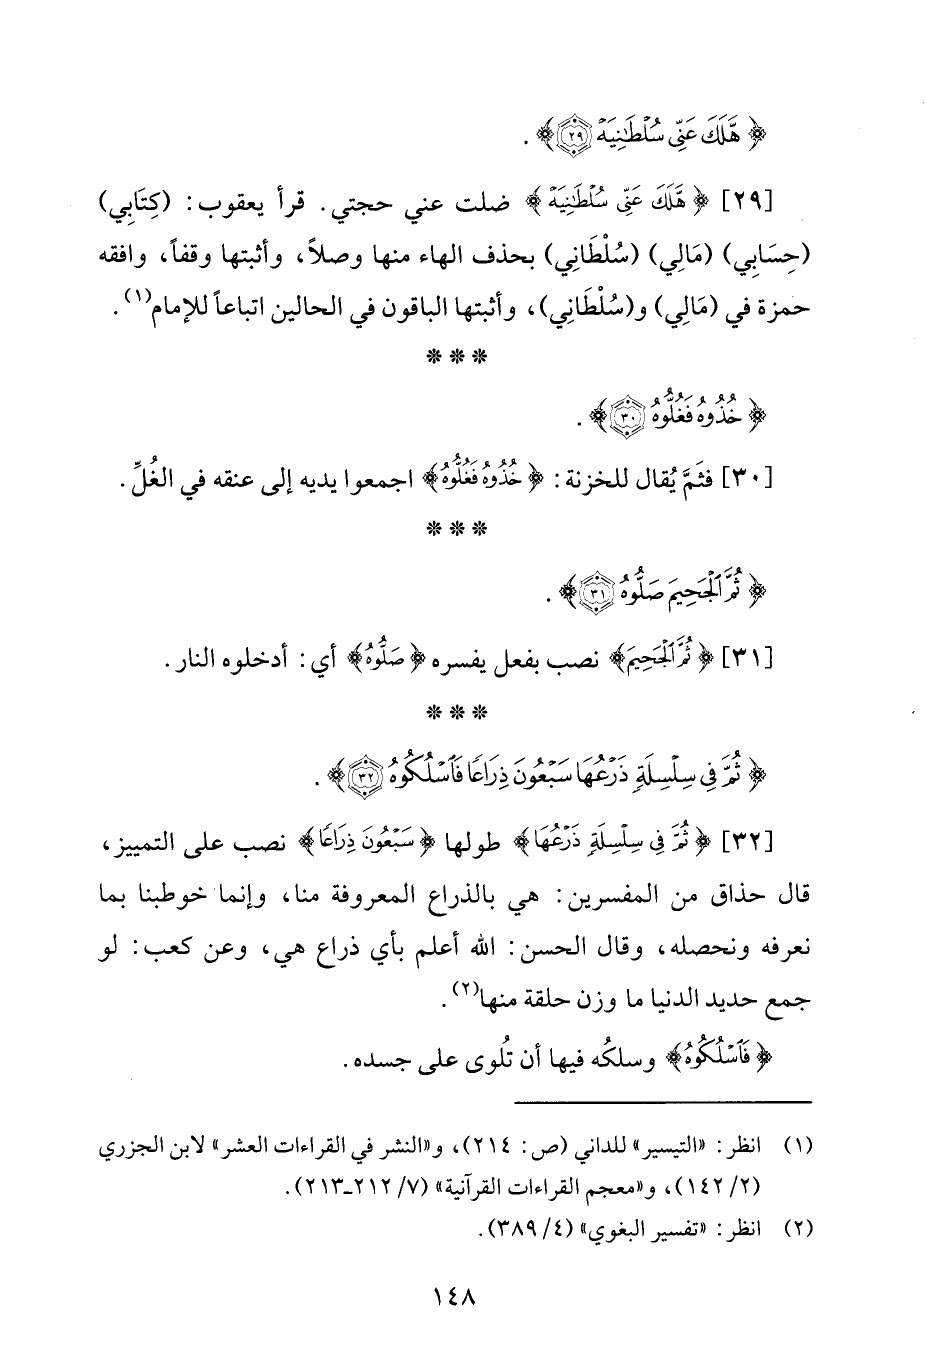 ﴿ هَّلَكَ عَنِّي سُلْطَٰنِيَهْ ۝٢٩ ﴾ .
[٢٩] ﴿ هَّلَكَ عَنِّي سُلْطَٰنِيَهْ ﴾ ضلت عني حجتي. قرأ يعقوب: (كِتَابِي)
(حِسَابِي) (مَالِي) (سُلْطَانِي) بحذف الهاء منها وصلاً، وأثبتها وقفاً، وافقه
حمزة في (مَالِي) و(سُلْطَانِي)، وأثبتها الباقون في الحالين اتباعاً للإمام(١).
* * *
﴿ خُذُوهُ فَغُلُّوهُ ۝٣٠ ﴾ .
[٣٠] فثَمَّ يُقال للخزنة: ﴿ خُذُوهُ فَغُلُّوهُ ﴾ اجمعوا يديه إلى عنقه في الغُلِّ.
* * *
﴿ ثُمَّ ٱلْجَحِيمَ صَلُّوهُ ۝٣١ ﴾ .
[٣١] ﴿ ثُمَّ ٱلْجَحِيمَ ﴾ نصب بفعل يفسره ﴿ صَلُّوهُ ﴾ أي: أدخلوه النار.
* * *
﴿ ثُمَّ فِي سِلْسِلَةٍ ذَرْعُهَا سَبْعُونَ ذِرَاعًا فَٱسْلُكُوهُ ۝٣٢ ﴾ .
[٣٢] ﴿ ثُمَّ فِي سِلْسِلَةٍ ذَرْعُهَا ﴾ طولها ﴿ سَبْعُونَ ذِرَاعًا ﴾ نصب على التمييز،
قال حذاق من المفسرين: هي بالذراع المعروفة منا، وإنما خوطبنا بما
نعرفه ونحصله، وقال الحسن: الله أعلم بأي ذراع هي، وعن كعب: لو
جمع حديد الدنيا ما وزن حلقة منها(٢).
﴿ فَٱسْلُكُوهُ ﴾ وسلكُه فيها أن تُلوى على جسده.
(١) انظر: «التيسير» للداني (ص: ٢١٤)، و«النشر في القراءات العشر» لابن الجزري
(٢/ ١٤٢)، و«معجم القراءات القرآنية» (٧/ ٢١٢-٢١٣).
(٢) انظر: «تفسير البغوي» (٤/ ٣٨٩).
١٤٨